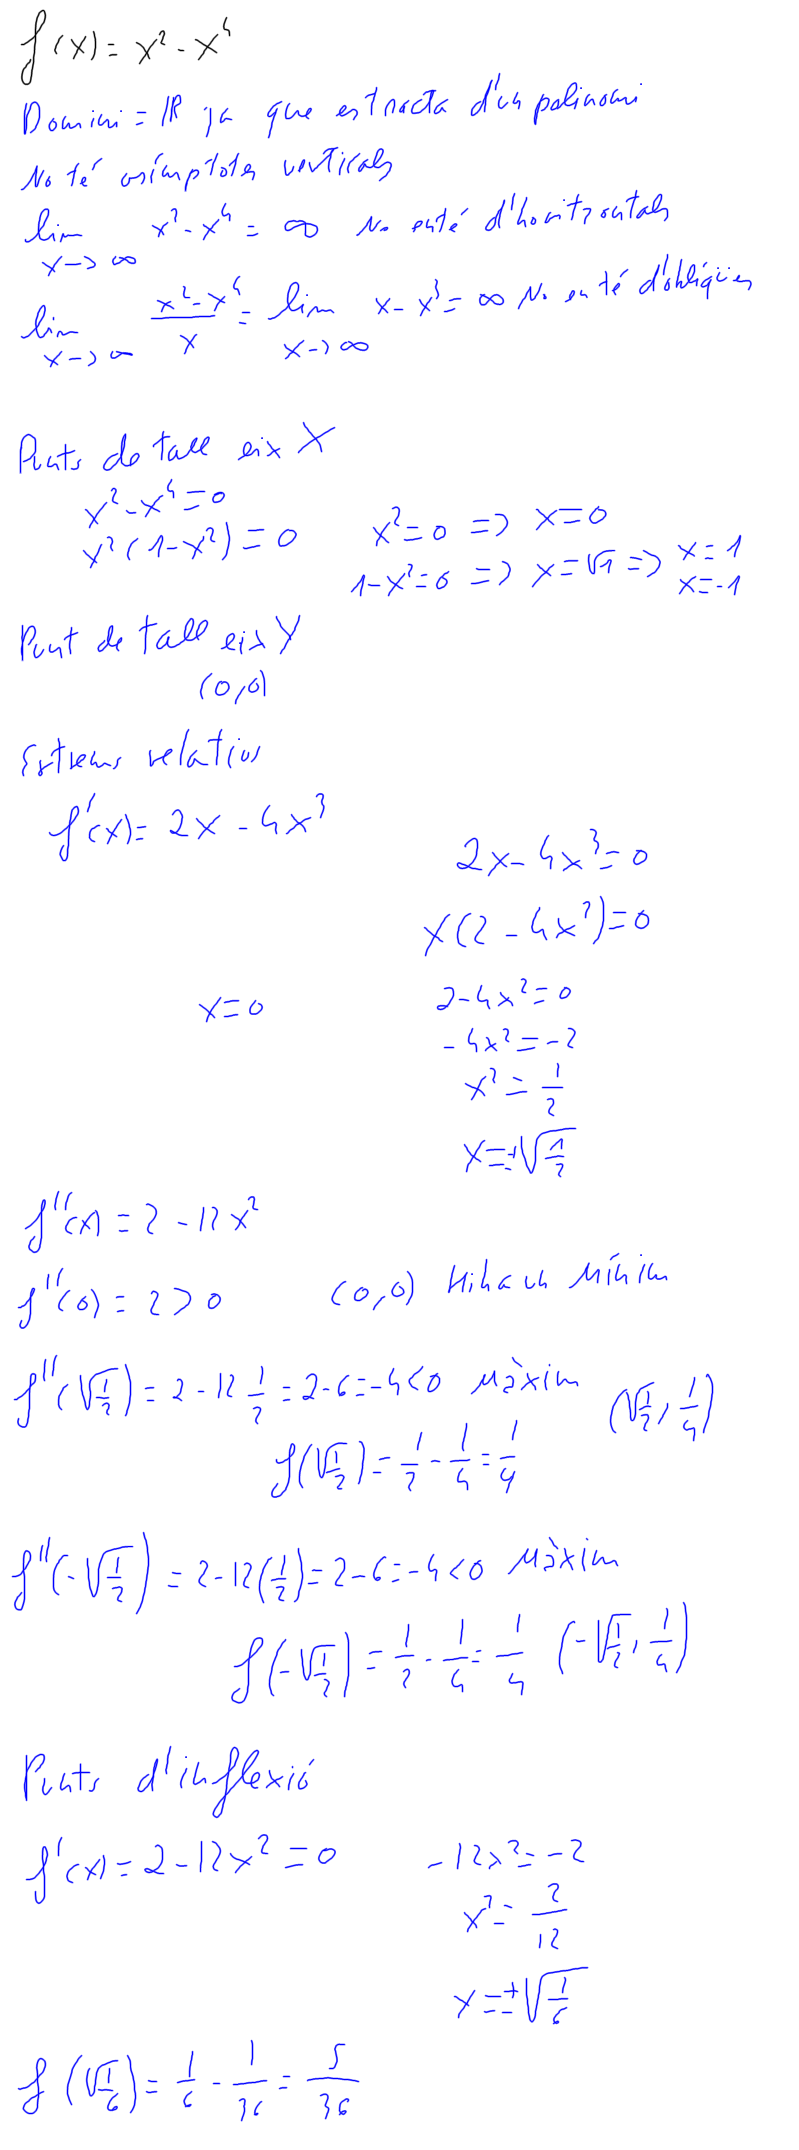 f(x) = x² - x⁴
Domini = ℝ ja que es tracta d'un polinomi
No té asímptotes verticals
lim x->∞ x² - x⁴ = ∞ No en té d'horitzontals
lim x->∞ (x² - x⁴)/x = lim x->∞ x - x³ = ∞ No en té d'obliqües
Punts de tall eix X
x² - x⁴ = 0
x²(1 - x²) = 0 x² = 0 => x = 0
1 - x² = 0 => x = √1 => x = 1 x = -1
Punt de tall eix Y
(0,0)
Extrems relatius
f'(x) = 2x - 4x³
2x - 4x³ = 0
x(2 - 4x²) = 0
x = 0 2 - 4x² = 0
-4x² = -2
x² = 1/2
x = ±√(1/2)
f''(x) = 2 - 12x²
f''(0) = 2 > 0 (0,0) Hi ha un Mínim
f''(√(1/2)) = 2 - 12 1/2 = 2 - 6 = -4 < 0 Màxim (√(1/2), 1/4)
f(√(1/2)) = 1/2 - 1/4 = 1/4
f''(-√(1/2)) = 2 - 12(1/2) = 2 - 6 = -4 < 0 Màxim
f(-√(1/2)) = 1/2 - 1/4 = 1/4 (-√(1/2), 1/4)
Punts d'inflexió
f'(x) = 2 - 12x² = 0 -12x² = -2
x² = 2/12
x = ±√(1/6)
f(√(1/6)) = 1/6 - 1/36 = 5/36